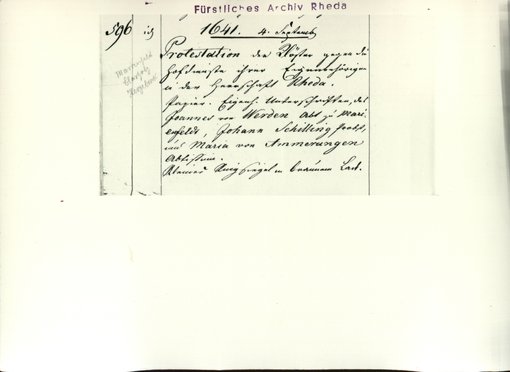 Fürstliches Archiv Rheda
596 1641. 4. Septemb
Protestation der Klöster gegen die
Hofdienste ihrer Eigenbehörigen
in der Herrschaft Rheda.
Papier. Eigenh. Unterschriften, des
Joannes von Werden Abt zu Mari-
enfeldt, Johann Schilling Probst,
und Maria von Ammerungen
Abtissinn.
Kleines Ringsiegel in braunem Lack.
Marienfeld